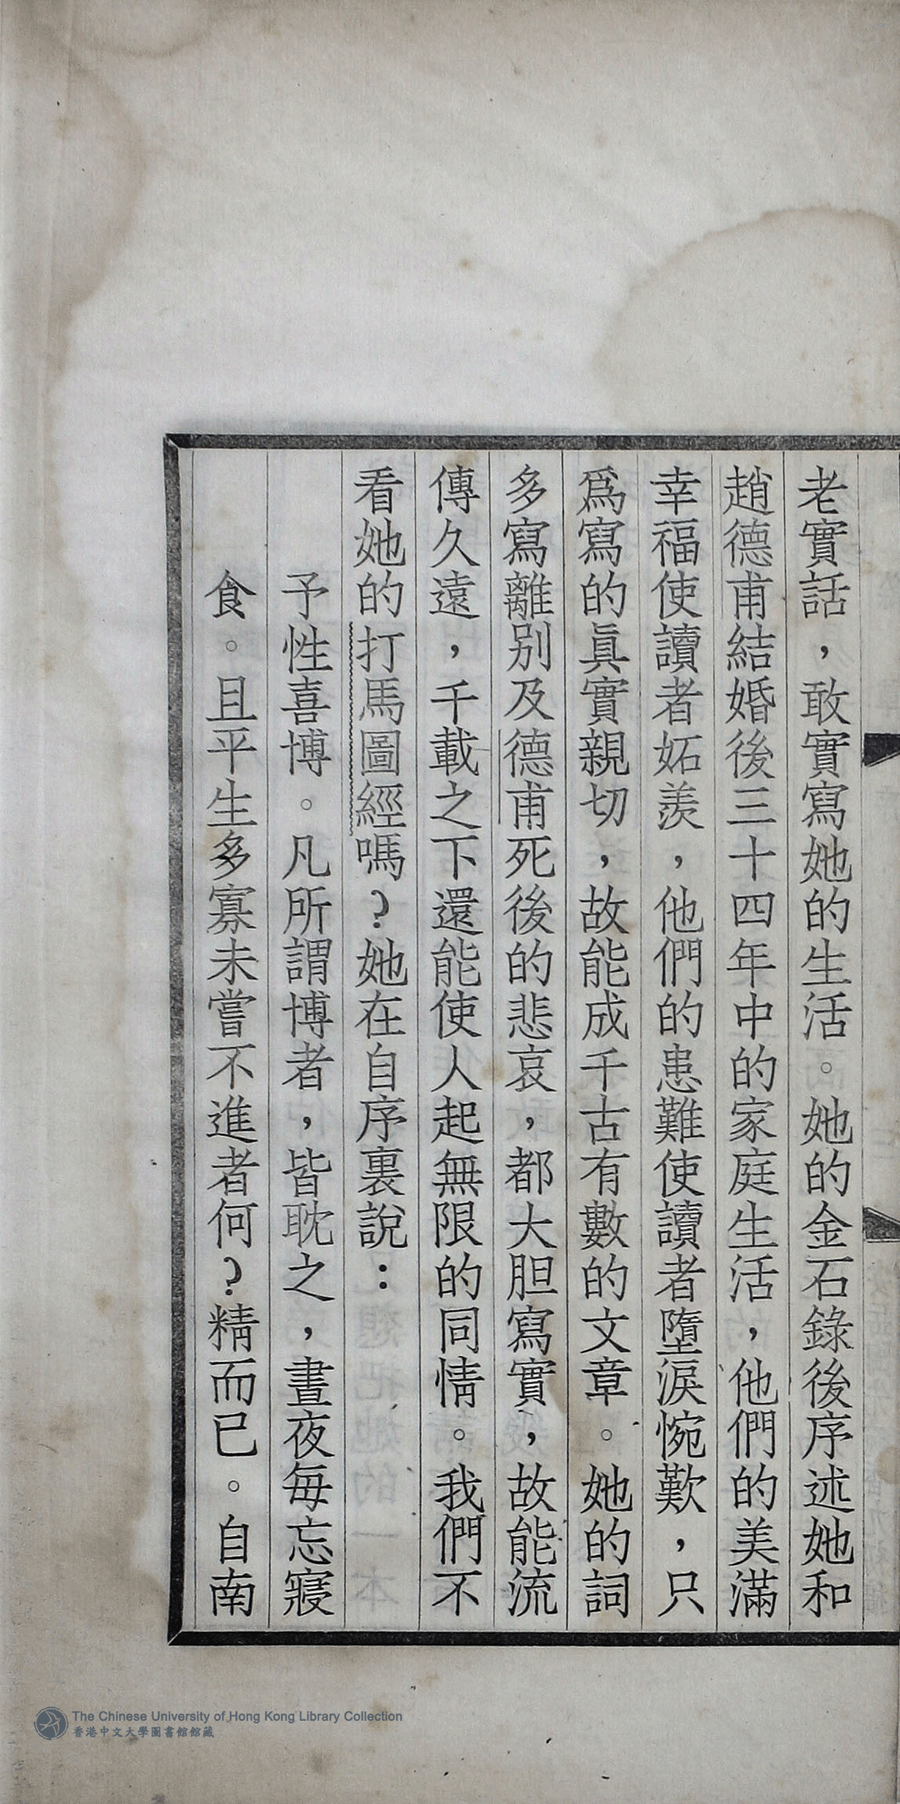 老實話，敢實寫她的生活。她的金石錄後序述她和
趙德甫結婚後三十四年中的家庭生活，他們的美滿
幸福使讀者妬羨，他們的患難使讀者墮淚惋歎，只
爲寫的眞實親切，故能成千古有數的文章。她的詞
多寫離別及德甫死後的悲哀，都大胆寫實，故能流
傳久遠，千載之下還能使人起無限的同情。我們不
看她的打馬圖經嗎？她在自序裏說：
予性喜博。凡所謂博者，皆耽之，晝夜每忘寢
食。且平生多寡未嘗不進者何？精而已。自南
The Chinese University of Hong Kong Library Collection
香港中文大學圖書館館藏